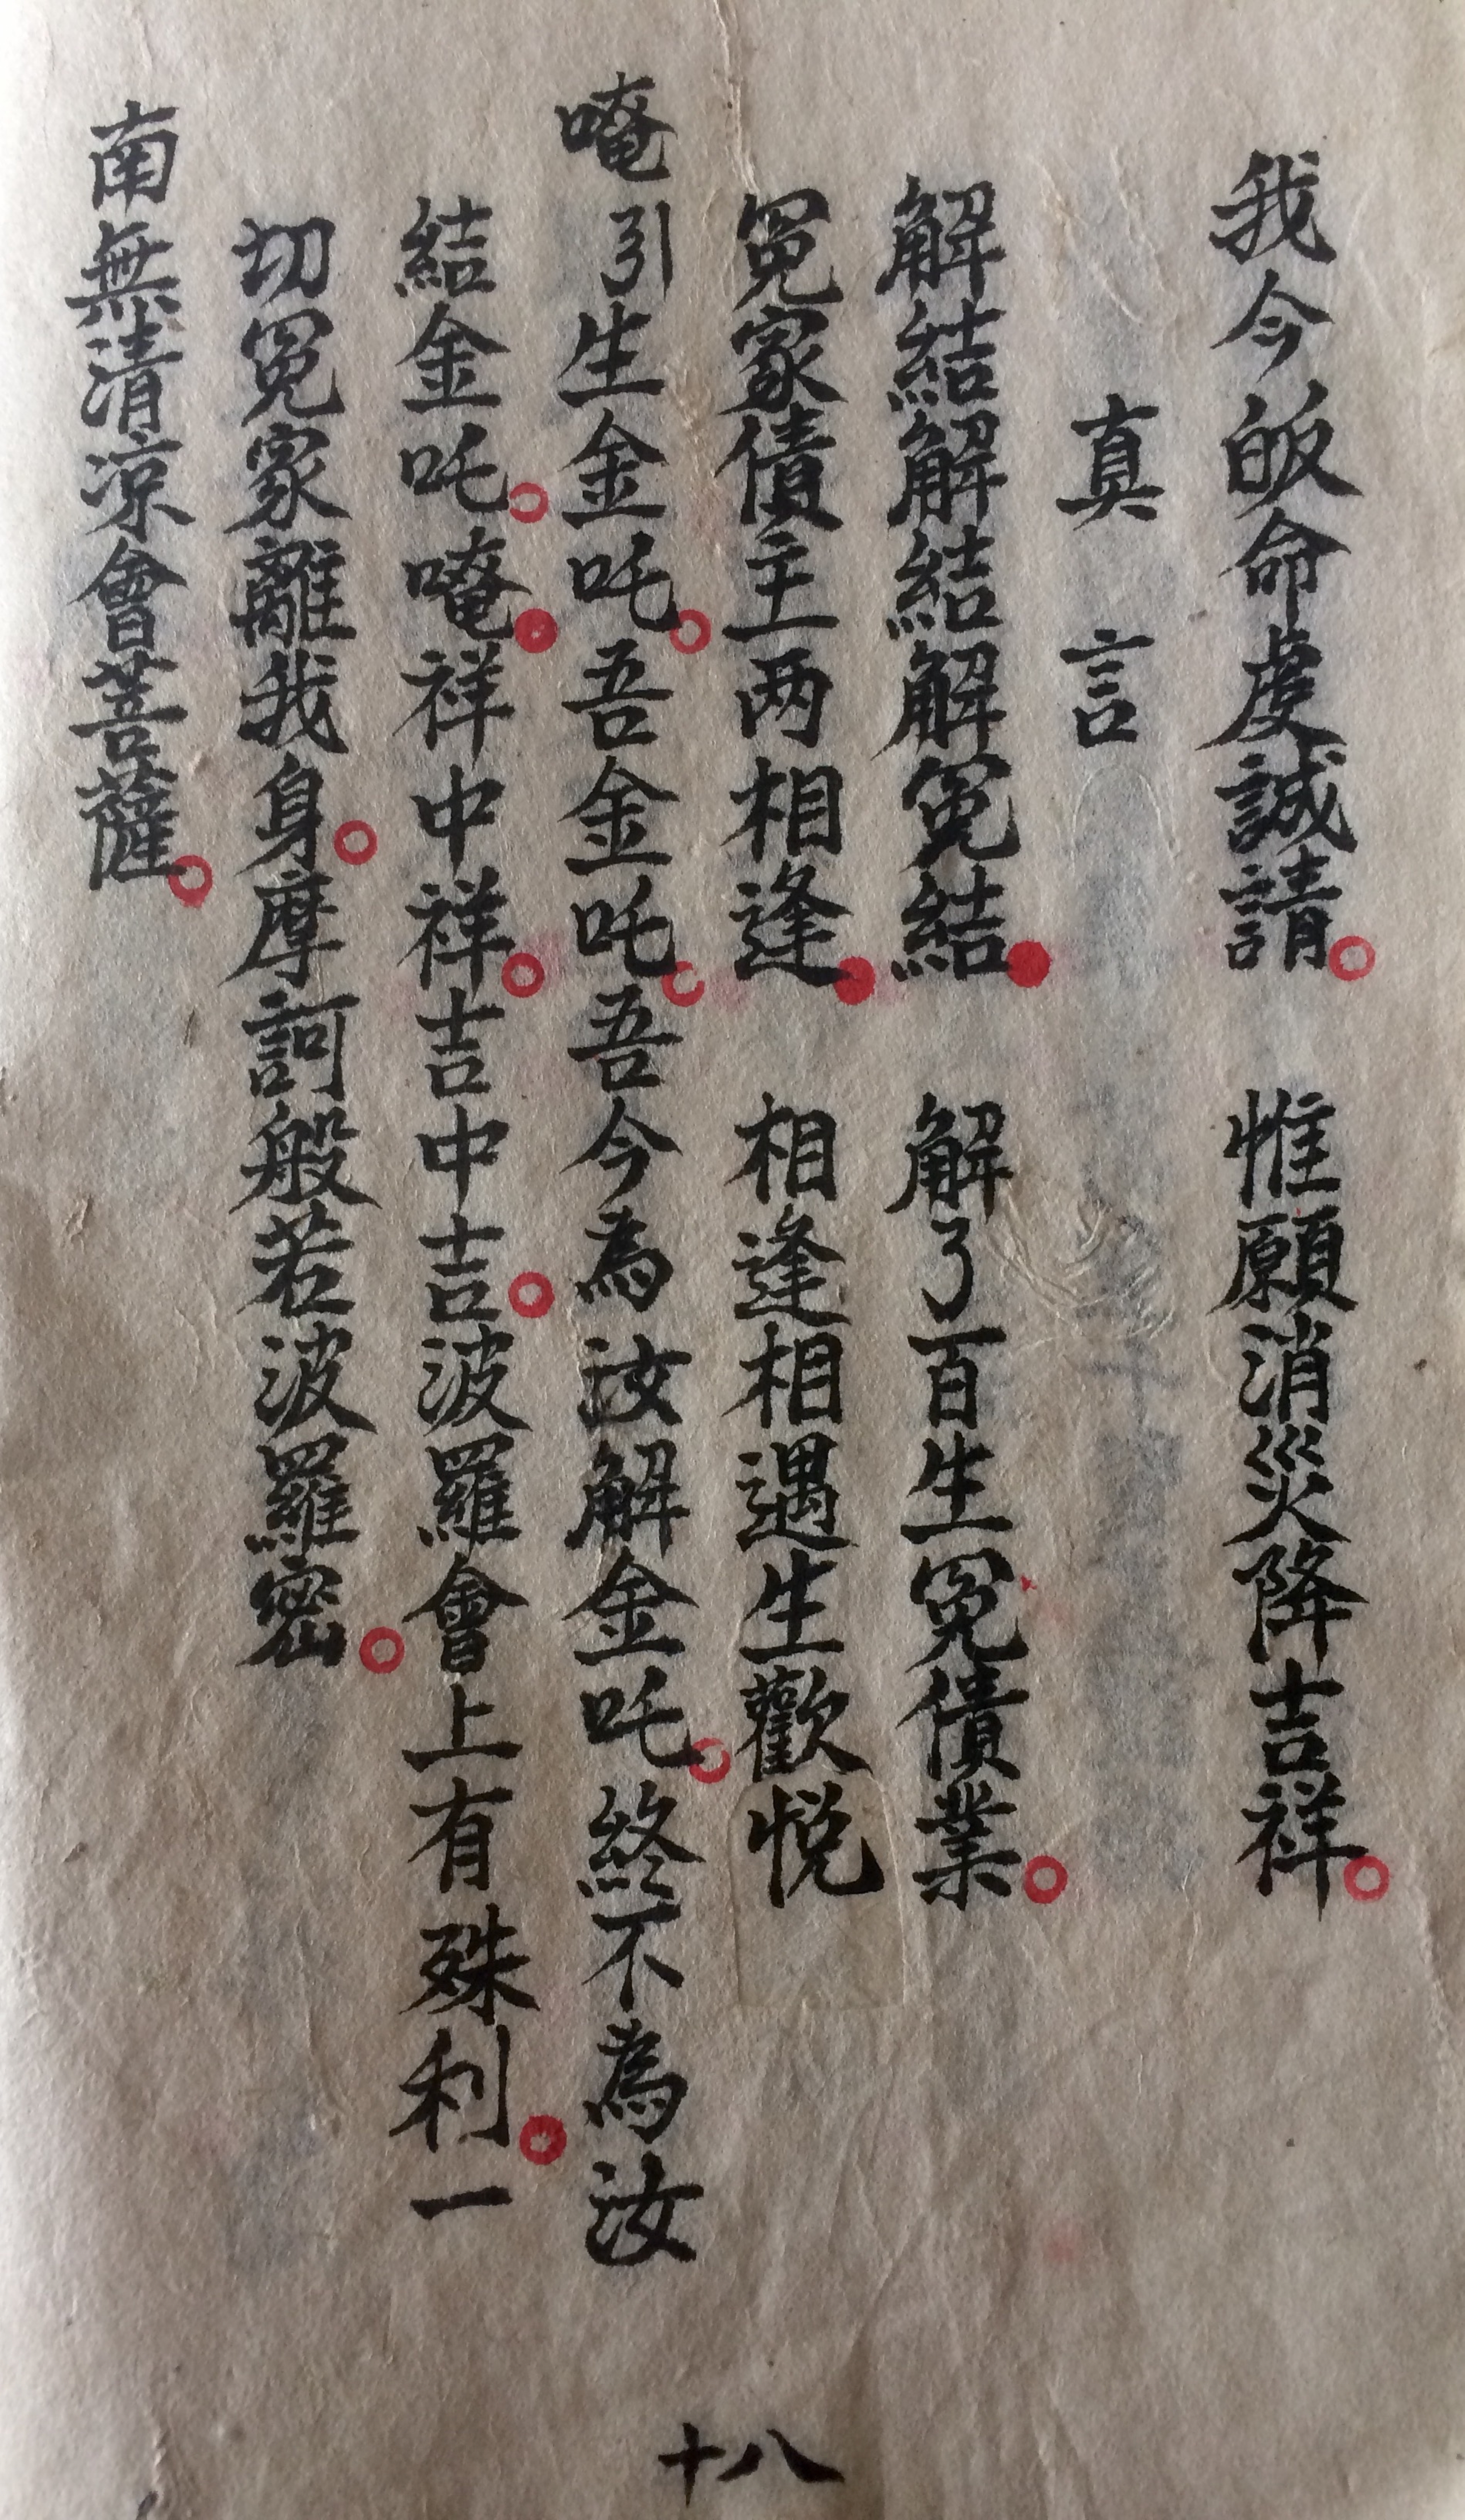 我今皈命虔誠請。惟願消災降吉祥。
真言
解結解結解冤結。解了百生冤債業。
冤家債主两相逢。相逢相遇生歡悦
唵引生金吒。吾金吒。吾今為汝解金吒。終不為汝
結金吒。唵。祥中祥。吉中吉。波羅會上有殊利。一
切冤家離我身。摩訶般若波羅密。
南無清凉會菩薩。
十八